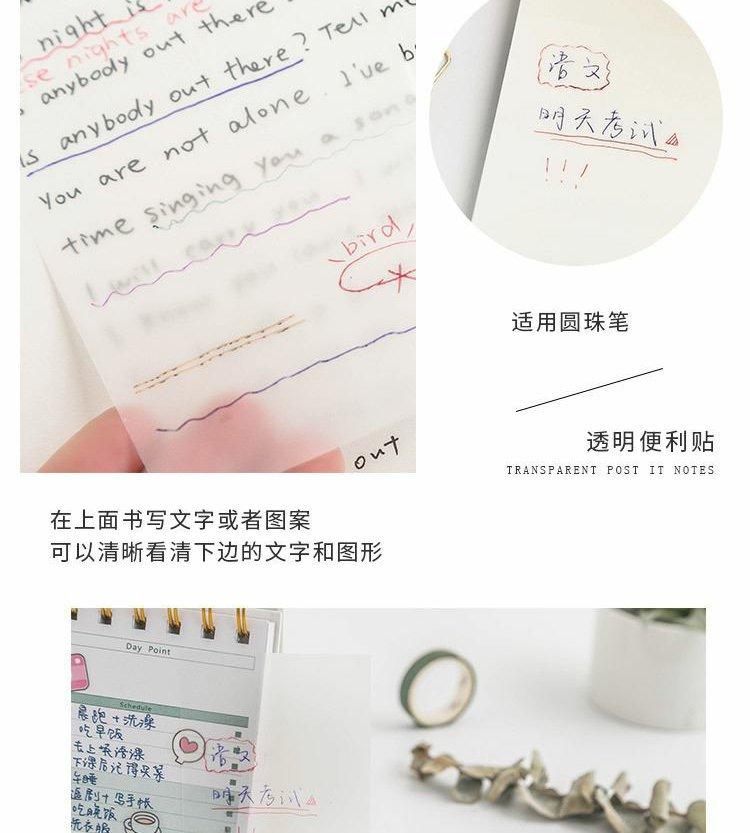 night is
se nights are
anybody out there
is anybody out there? Tell me
You are not alone. I've b
time singing you a song
I will carry you
bird
out
语文
明天考试
!!!
适用圆珠笔
透明便利贴
TRANSPARENT POST IT NOTES
在上面书写文字或者图案
可以清晰看清下边的文字和图形
Day Point
Schedule
晨跑+洗澡
吃早饭
去上英语课
下课后记得买菜
午睡
追剧+写手帐
吃晚饭
洗衣服
语文
明天考试